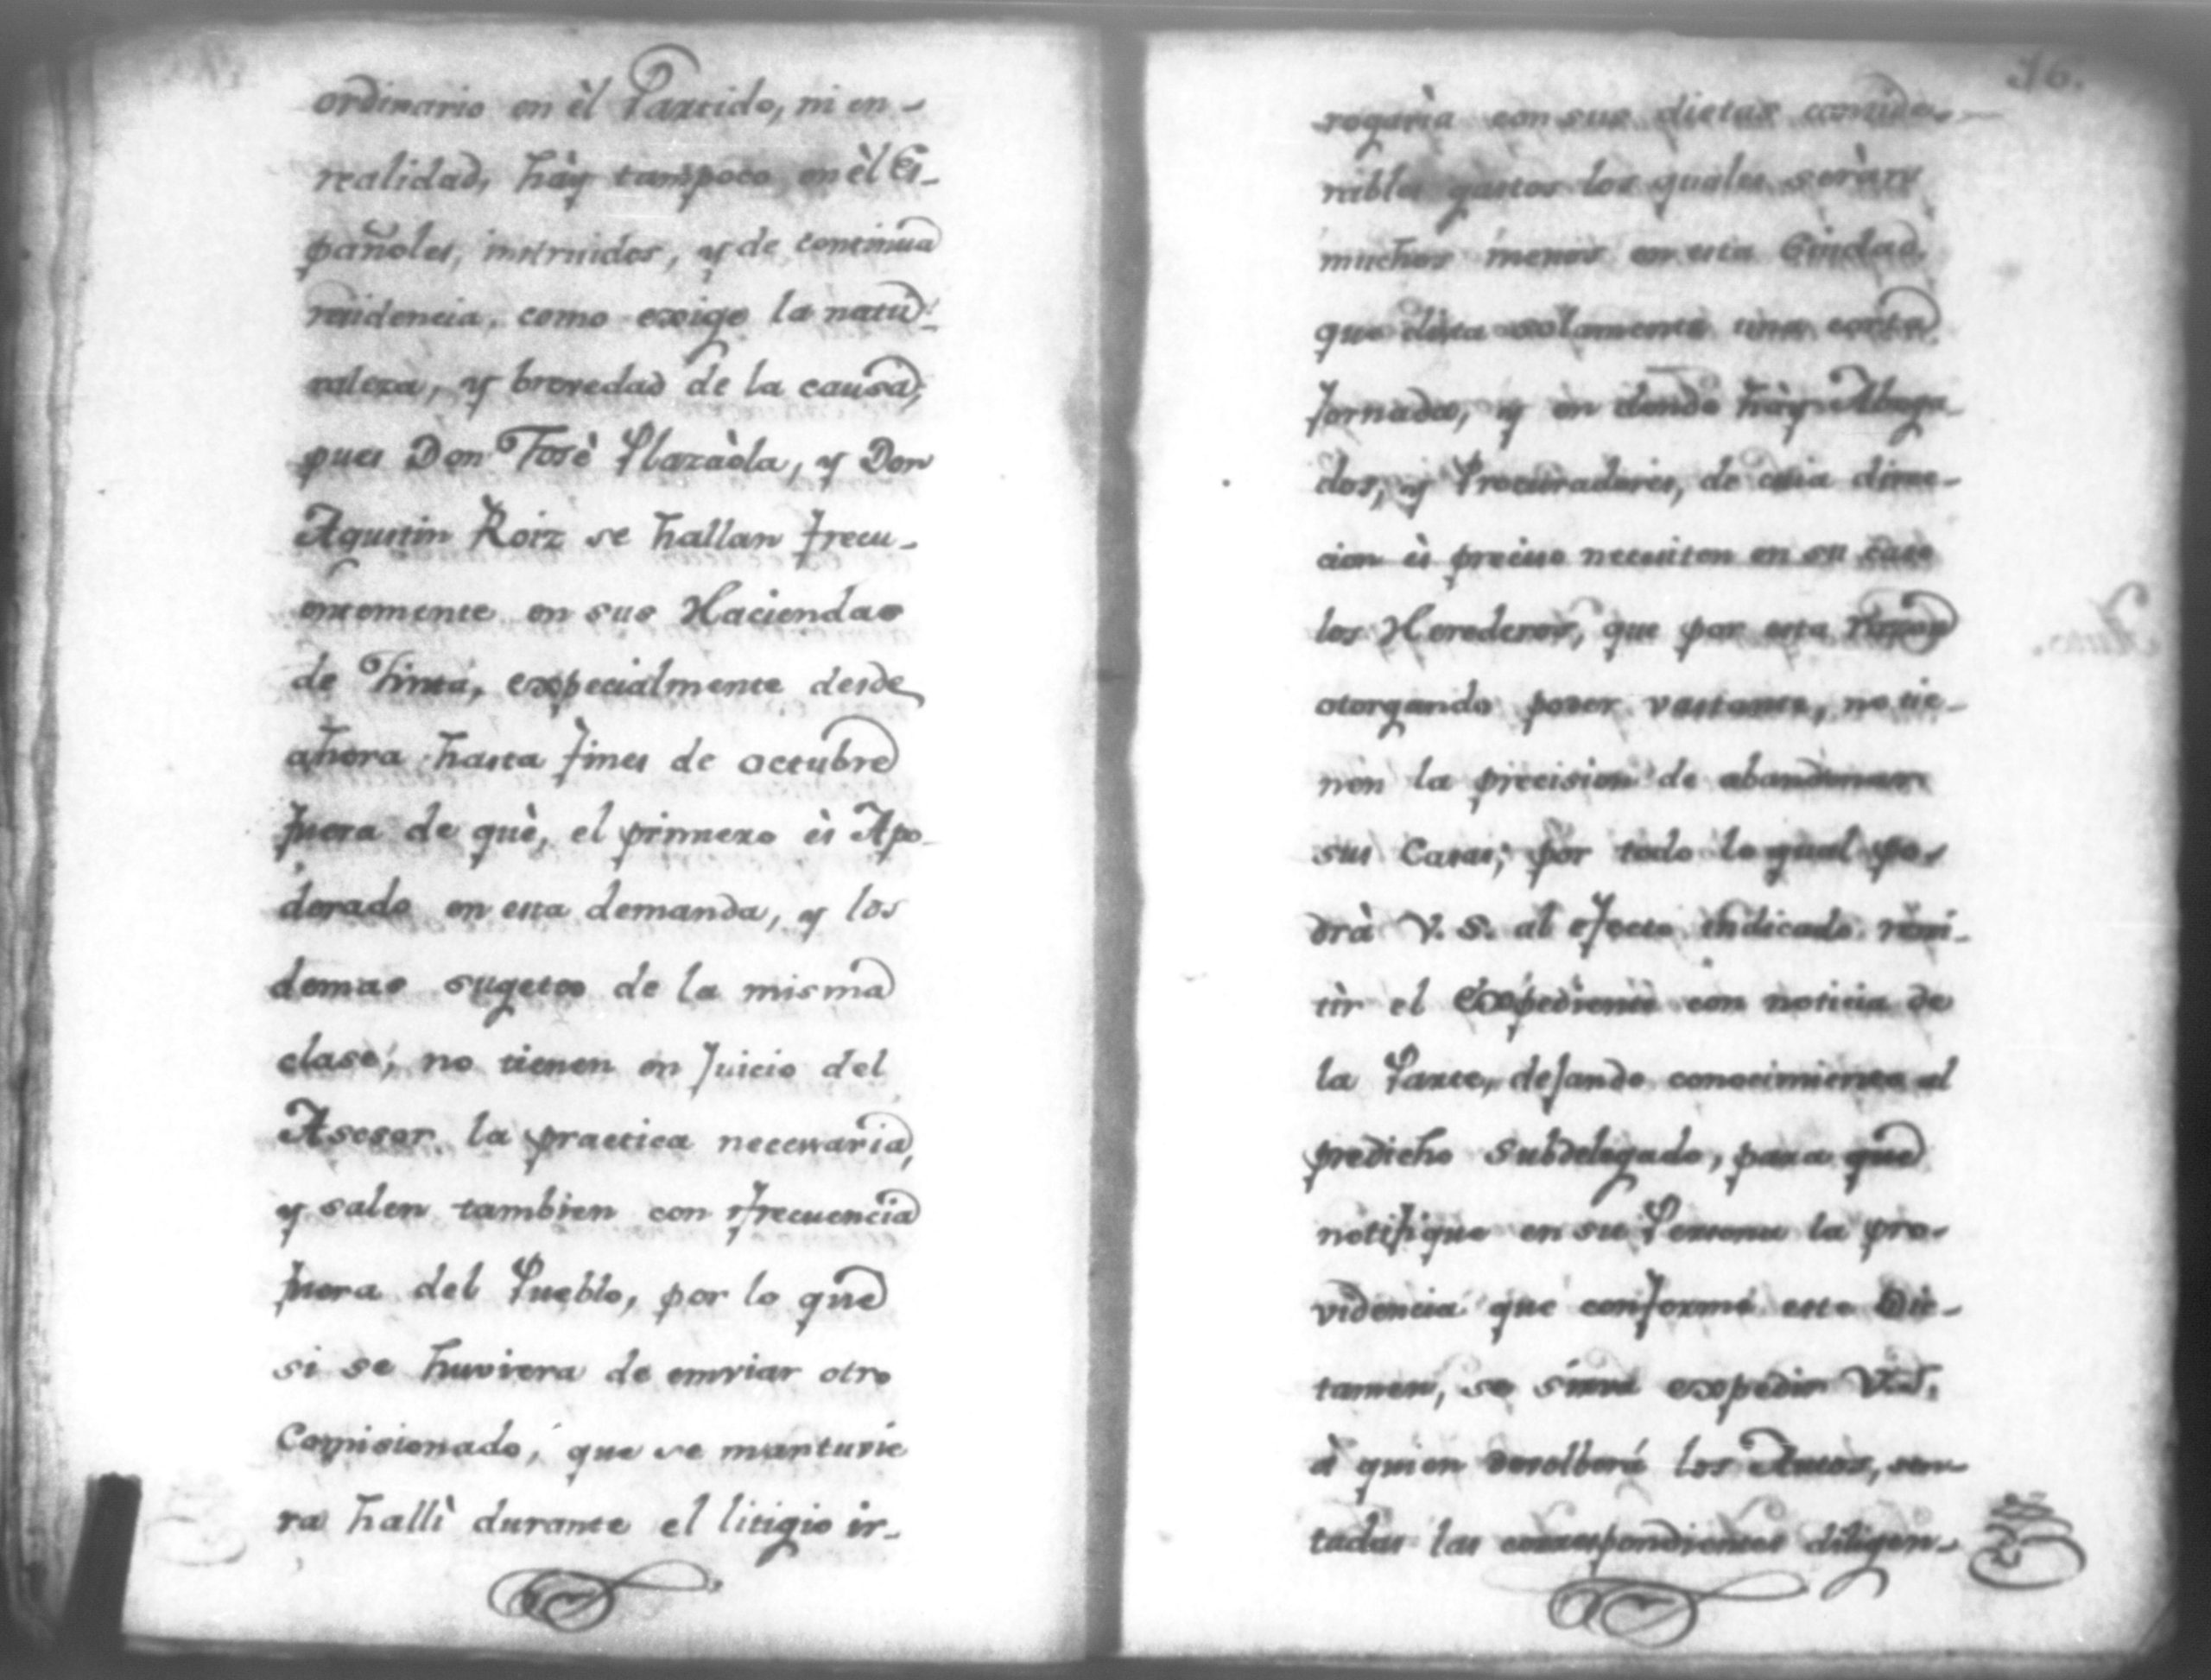 ordinario en èl Partido, ni en-
realidad, hày tampoco en èl Es-
pañoles, instruidos, y de continua
residencia, como exige la natu-
raleza, y brevedad de la causa;
pues Don Josè Plazàola, y Don
Agustin Roiz se hallan frecu-
entemente en sus Haciendas
de Tinta, expecialmente desde
ahora hasta fines de octubre
fuera de què, el primero ès Apo-
derado en esta demanda, y los
demas sugetos de la misma
clase, no tienen en Juicio del
Asesor la practica necesaria,
y salen tambien con frecuencia
fuera del Pueblo, por lo que
si se huviera de emviar otro
Comisionado, que se mantuvie
ra hallì durante el litigio ir-
16.
rogarìa con sus dietas conside-
rables gastos los quales seràn
muchos menos en esta Ciudad,
que dista solamente una corta
Jornada, y en donde hày Aboga-
dos, y Procuradores, de cuia direc-
cion ès preciso necesiten en su caso
los Herederos, que por esta razon
otorgando poder vastante, no tie-
nen la precision de abandonar
sus Casas; por todo lo qual po-
drà V. S. al efecto indicado remi-
tìr el Expediente con noticia de
la Parte, dejando conocimiento al
predicho Subdelegado, para que
notifique en su Persona la pro-
videncia que conforme este Dic-
tamen, se sirva expedir V.S.
à quien devolberá los Autos, sen-
tadas las correspondientes diligen-